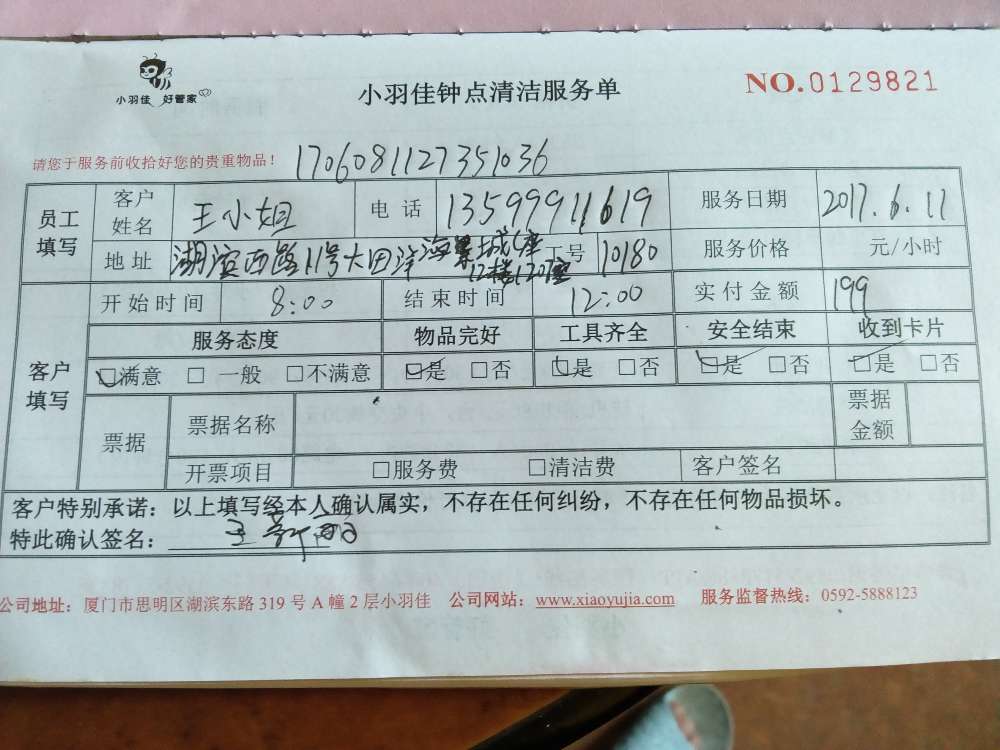 小羽佳 好管家
小羽佳钟点清洁服务单
NO.0129821
请您于服务前收拾好您的贵重物品！ 1706081127351036
员工填写 客户姓名 王小姐 电话 13599911619 服务日期 2017.6.11
地址 湖滨西路11号大西洋海景城 工号 10180 服务价格 元/小时
12楼
客户填写 开始时间 8:00 结束时间 12:00 实付金额 199
服务态度 物品完好 工具齐全 安全结束 收到卡片
☑满意 □ 一般 □不满意 ☑是 □否 ☑是 □否 ☑是 □否 ☑是 □否
票据 票据名称 票据金额
开票项目 □服务费 □清洁费 客户签名
客户特别承诺：以上填写经本人确认属实，不存在任何纠纷，不存在任何物品损坏。
特此确认签名： 王
公司地址：厦门市思明区湖滨东路 319 号 A 幢 2 层小羽佳 公司网站：www.xiaoyujia.com 服务监督热线：0592-5888123